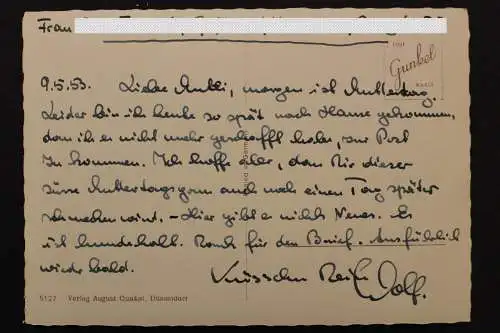 Frau
von
Gunkel
KARTE
9.5.53. Liebe Mutti, morgen ist Muttertag.
Leider bin ich heute so spät nach Hause gekommen,
dass ich es nicht mehr geschafft habe, zur Post
zu kommen. Ich hoffe aber, dass Dir dieser
süsse Muttertagsgruss auch noch einen Tag später
schmecken wird. – Hier gibt es nichts Neues. Es
ist hundekalt. Dank für den Brief. Ausführlich
wieder bald.
Küsschen Dein Wolf.
5127 Verlag August Gunkel, Düsseldorf